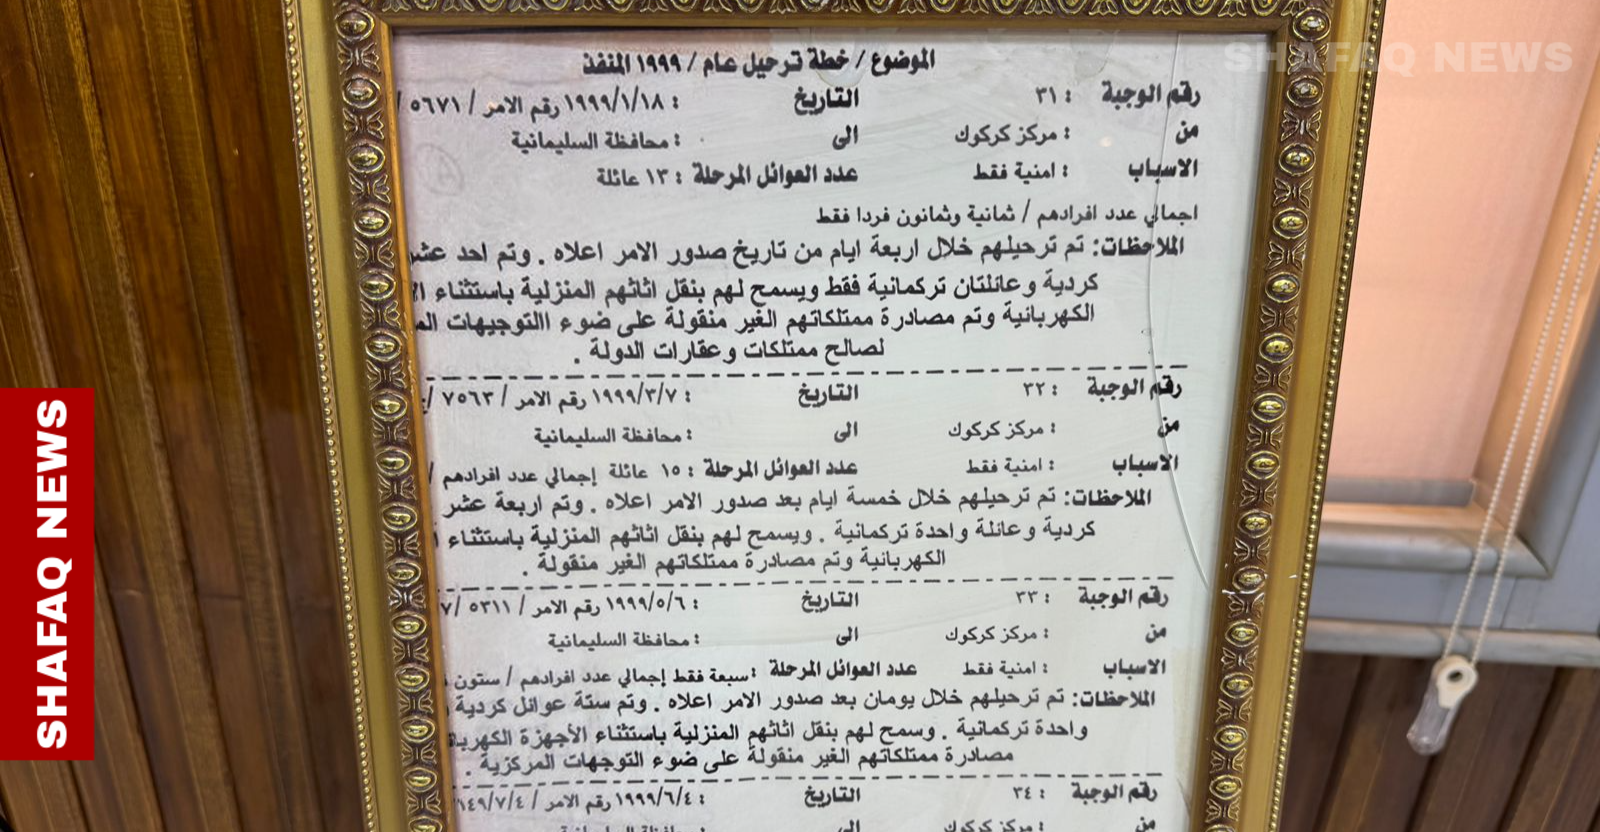 SHAFAQ NEWS
SHAFAQ NEWS
الموضوع / خطة ترحيل عام / ١٩٩٩ المنفذ
رقم الوجبة : ٣١ التاريخ : ١٩٩٩/١/١٨ رقم الامر / ٥٦٧١ /
من : مركز كركوك الى : محافظة السليمانية
الاسباب : امنية فقط عدد العوائل المرحلة : ١٣ عائلة
اجمالي عدد افرادهم / ثمانية وثمانون فردا فقط
الملاحظات: تم ترحيلهم خلال اربعة ايام من تاريخ صدور الامر اعلاه . وتم احد عشر
كردية وعائلتان تركمانية فقط ويسمح لهم بنقل اثاثهم المنزلية باستثناء
الكهربائية وتم مصادرة ممتلكاتهم الغير منقولة على ضوء االتوجيهات
لصالح ممتلكات وعقارات الدولة .
رقم الوجبة : ٣٢ التاريخ : ١٩٩٩/٣/٧ رقم الامر / ٧٥٦٣ /
من : مركز كركوك الى : محافظة السليمانية
الاسباب : امنية فقط عدد العوائل المرحلة : ١٥ عائلة إجمالي عدد افرادهم /
الملاحظات: تم ترحيلهم خلال خمسة ايام بعد صدور الامر اعلاه . وتم اربعة عشر
كردية وعائلة واحدة تركمانية . ويسمح لهم بنقل اثاثهم المنزلية باستثناء
الكهربائية وتم مصادرة ممتلكاتهم الغير منقولة .
رقم الوجبة : ٣٣ التاريخ : ١٩٩٩/٥/٦ رقم الامر / ٥٣١١ /٧
من : مركز كركوك الى : محافظة السليمانية
الاسباب : امنية فقط عدد العوائل المرحلة : سبعة فقط إجمالي عدد افرادهم / ستون
الملاحظات: تم ترحيلهم خلال يومان بعد صدور الامر اعلاه . وتم ستة عوائل كردية
واحدة تركمانية . وسمح لهم بنقل اثاثهم المنزلية باستثناء الأجهزة
مصادرة ممتلكاتهم الغير منقولة على ضوء التوجهات المركزية .
رقم الوجبة : ٣٤ التاريخ : ١٩٩٩/٦/٤ رقم الامر / ١٤٩/٧/٤
من : مركز كركوك الى